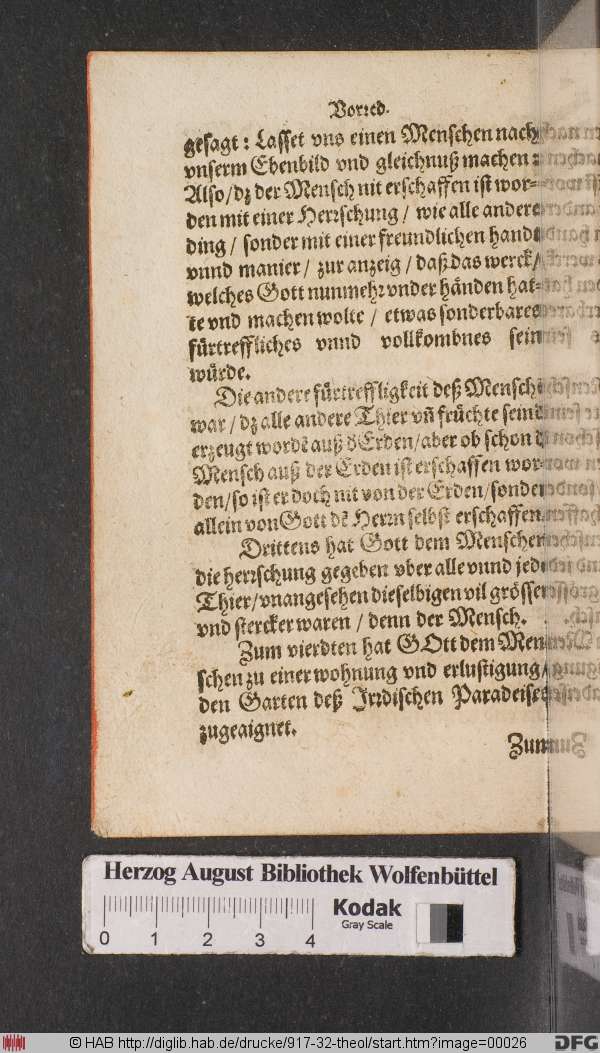 Vorred.
gesagt: Lasset vns einen Menschen nach
vnserm Ebenbild vnd gleichnuß machen:
Also/dz der Mensch nit erschaffen ist wor-
den mit einer Herrschung / wie alle andere
ding / sonder mit einer freundlichen hand
vnnd manier / zur anzeig / daß das werck/
welches Gott nunmehr vnder händen hat-
te vnd machen wolte / etwas sonderbares
fürtreffliches vnnd vollkombnes sein
würde.
Die andere fürtreffligkeit deß Mensch
war / dz alle andere Thier vñ früchte seind
erzeugt wordẽ auß d̕ Erden/aber ob schon d
Mensch auß der Erden ist erschaffen wor-
den/so ist er doch nit von der Erden/sonder
allein von Gott dẽ Herrn selbst erschaffen.
Drittens hat Gott dem Menschen
die herrschung gegeben vber alle vnnd jede
Thier/vnangesehen dieselbigen vil grösser
vnd stercker waren / denn der Mensch.
Zum vierdten hat GOtt dem Men-
schen zu einer wohnung vnd erlustigung/
den Garten deß Irrdischen Paradeises
zugeaignet.
Zum
Herzog August Bibliothek Wolfenbüttel
0 1 2 3 4
Kodak
Gray Scale
© HAB http://diglib.hab.de/drucke/917-32-theol/start.htm?image=00026
DFG